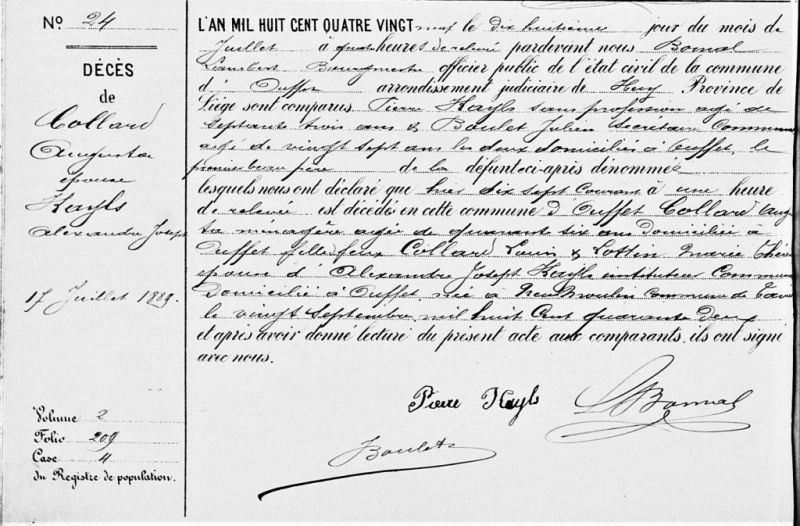 No 24
DÉCÈS
de
Collard
Augusta
épouse
Kayls
Alexandre Joseph
17 Juillet 1889.
Volume 2
Folio 209
Case 4
du Registre de population.
L'AN MIL HUIT CENT QUATRE VINGT neuf le dix huitième jour du mois de
Juillet à quatre heures de relevé pardevant nous Bomal
Lambert Bourgmestre officier public de l'état civil de la commune
d' Ouffet arrondissement judiciaire de Huy Province de
Liège sont comparus. Pierre Kayls sans profession agé de
Septante trois ans & Boulet Julien Secrétaire Commun
agé de vingt sept ans les deux domiciliés à Ouffet, le
premier beau père de la défunt ci-après dénommée
lesquels nous ont déclaré que hier dix sept Courant à une heure
de relevée est décédée en cette commune d Ouffet Collard Augu
ta ménagère agée de quarante six ans domiciliée à
Ouffet fille de feux Collard Louis & Marie Thérè
épouse d' Alexandre Joseph Kayls instituteur Commun
domicilié à Ouffet née à Commune de
le vingt Septembre mil huit Cent quarante deux
et après avoir donné lecture du présent acte aux comparants, ils ont signé
avec nous.
Pierre Kayls
L Bomal
Boulet